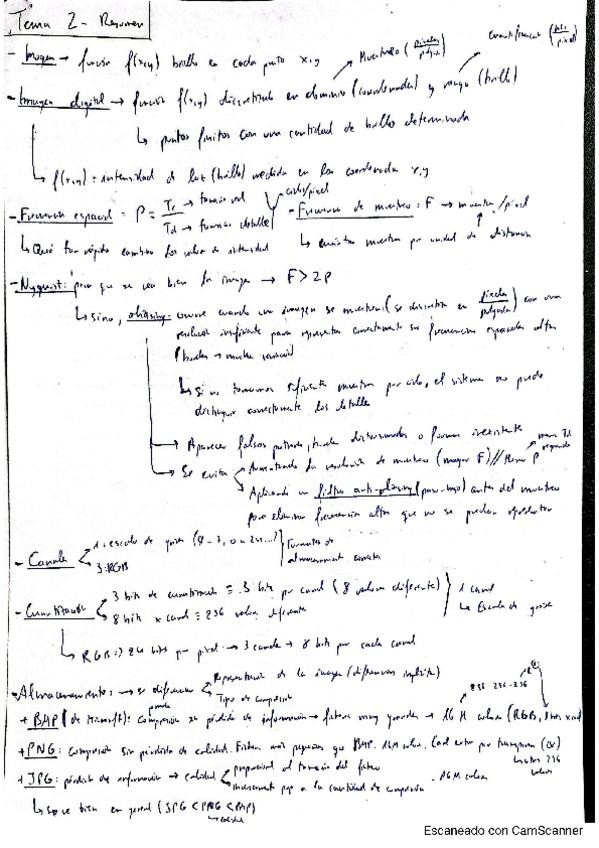 Tema 2 - Resumen
- Imagen → función f(x,y) brillo en cada punto x,y
Muestreo (píxeles/pulgada)
cuantificación (bits/píxel)
- Imagen digital → función f(x,y) discretizada en dominio (coordenadas) y rango (brillo)
↳ puntos finitos con una cantidad de brillo determinada
↳ f(x,y) = intensidad de luz (brillo) medida en las coordenadas x,y
- Frecuencia espacial = P = Tr → tamaño real / Td → tamaño detalle
ciclo/píxel
- Frecuencia de muestreo = F → muestras/píxel
↳ Qué tan rápido cambian los valores de intensidad
↳ cuántas muestras por unidad de distancia
- Nyquist: para que se vea bien la imagen → F > 2P
↳ sino, aliasing: ocurre cuando una imagen se muestrea (se discretiza en píxeles/pulgada) con una
resolución insuficiente para representar correctamente sus frecuencias espaciales altas
(bordes → mucha variación)
↳ Si no tomamos suficientes muestras por ciclo, el sistema no puede
distinguir correctamente los detalles
→ Aparecen falsos patrones, bordes distorsionados o formas inexistentes
→ Se evita
Aumentando la resolución de muestreo (mayor F) // Menor P
Aplicando un filtro anti-aliasing (paso-bajo) antes del muestreo
para eliminar frecuencias altas que no se puedan representar
- Canales
1: escala de grises
3: RGB
Formatos de
almacenamiento
- Cuantización
3 bits de cuantización = 3 bits por canal (8 valores diferentes)
8 bits x canal = 256 valores diferentes
1 canal
↳ Escala de grises
↳ RGB => 24 bits por píxel → 3 canales → 8 bits por cada canal
- Almacenamiento: → se diferencian
Representación de la imagen (diferencias implícitas)
Tipo de compresión
256·256·256
+ BMP (de Microsoft): compresión sin pérdida de información → ficheros muy grandes → 16M colores (RGB, 8 bits x canal)
+ PNG: compresión sin pérdida de calidad. Ficheros más pequeños que BMP. 16M colores. Canal extra por transparencia (α)
+ JPG: pérdida de información → calidad
proporcional al tamaño del fichero
inversamente prop a la cantidad de compresión
16M colores
↳ se ve bien en general (JPG < PNG < BMP)
↳ calidad
Escaneado con CamScanner